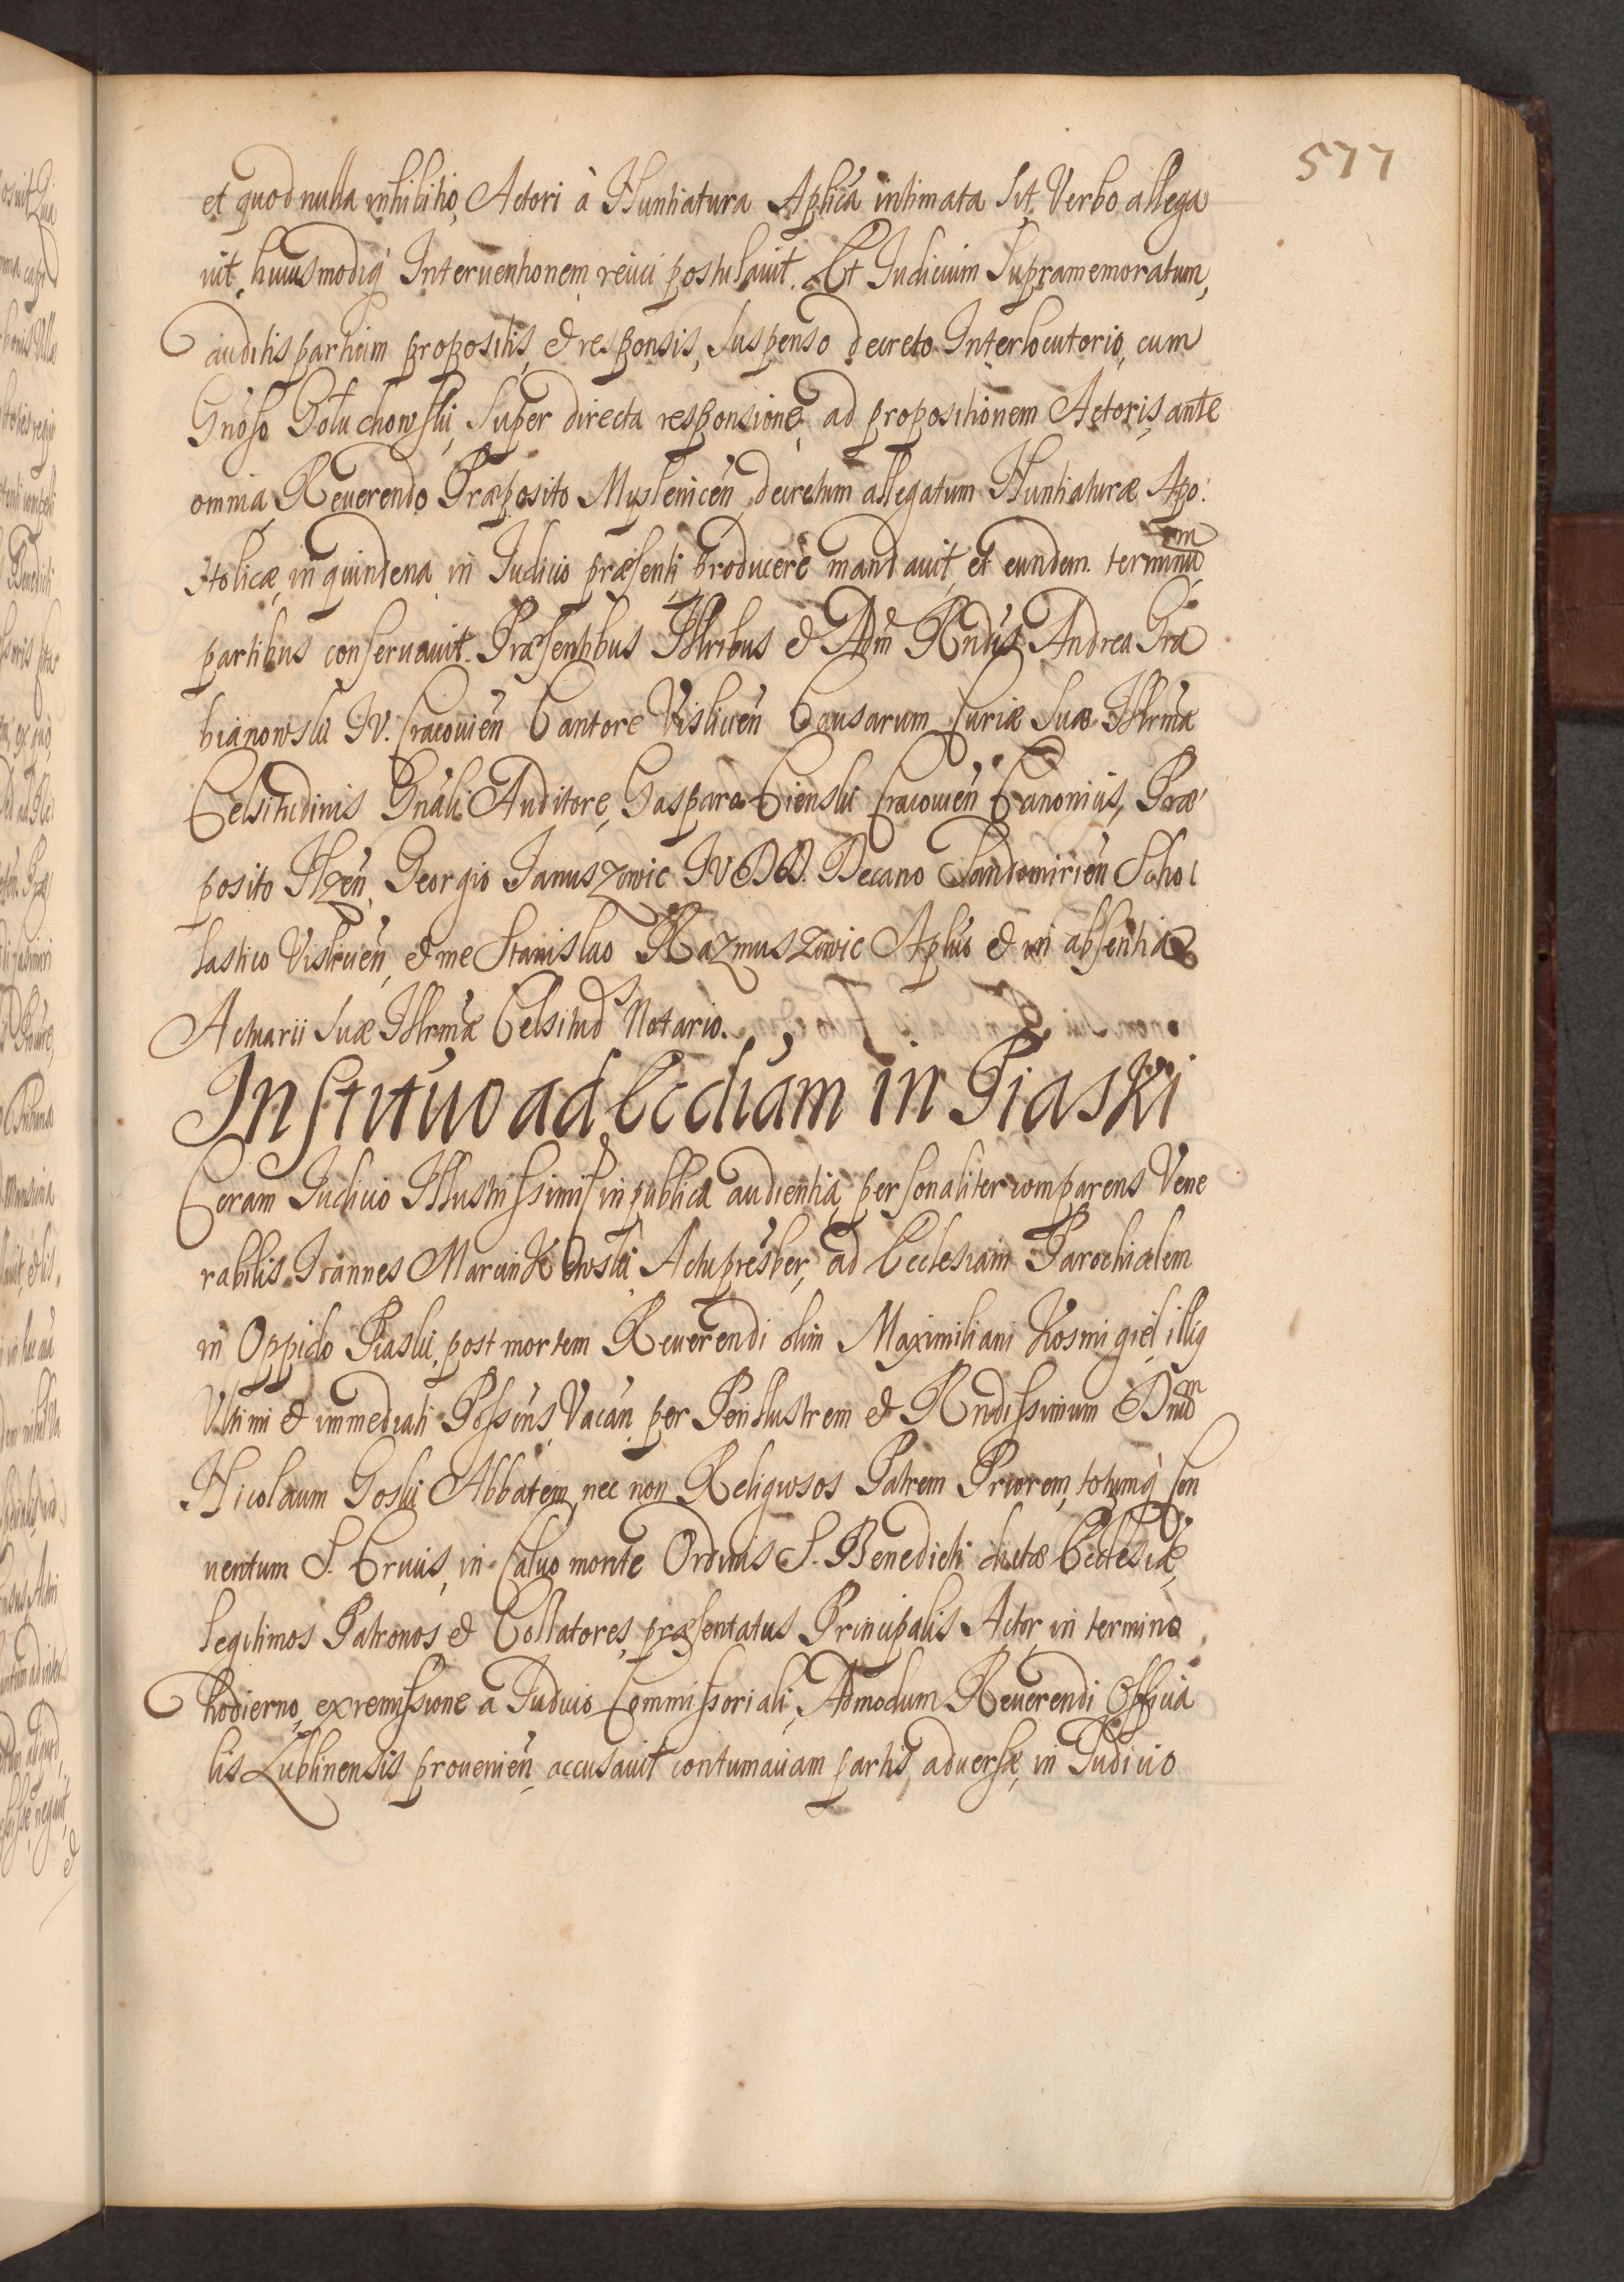 577
et quod nulla inhibitio, Actori à Nuntiatura Aplica intimata sit, Verbo allega
uit, huiusmodiq́ Interuentionem reiici postulauit. Et Iudicium Supramemoratum,
auditis partium propositis, & responsis, suspenso decreto Interlocutorio, cum
Gnoso Gołuchowski, super directa responsione, ad propositionem Actoris, ante
omnia, Reuerendo Præposito Myslenicen̄, decretum allegatum Nuntiaturæ Apo:
stolicæ, in quindena, in Iudicio præsenti, producere mandauit, et eundem terminum
partibus conseruauit. Præsentibus Illribus & Adm̄ Rndis Andrea Gra
bianowski I.V. Cracouien̄ Cantore Vislicien̄ Causarum Curiæ Suæ Illrmæ
Celsitudinis Gn̄ali Auditore, Gasparo Cienski Cracouien̄ Canonicis, Præ
posito Ilzen̄, Georgio Januszowic IVDD. Decano Sandomirien̄ Scho
lastico Vislicien̄, & me Stanislao Kazmuszowic Aplico & in absentia
Actuarii Suæ Illrmæ Celsitud Notario.
Institutio ad Eccliam in Piaski
Coram Iudicio Illustrissimis in publica audientia, personaliter comparens Vene
rabilis Ioannes Marcinkowski, Actu presber, ad Ecclesiam Parochialem
in Oppido Piaski, post mortem Reuerendi olim Maximiliani Kosmigiel, illiq
Vltimi & immediati Possens, Vacan̄, per Perillustrem & Rndissimum Dnum
Nicolaum Goski Abbatem, nec non Religiosos Patrem Priorem, totumq́ Con
uentum S. Crucis, in Caluo monte Ordinis S. Benedicti dictæ Ecclesiæ,
legitimos Patronos & Collatores, præsentatus Principalis Actor, in termino
hodierno, ex remissione a Iudicio Commissoriali, Admodum Reuerendi Officia
lis Lublinensis prouenien̄, accusauit contumaciam partis, aduersæ, in Iudicio